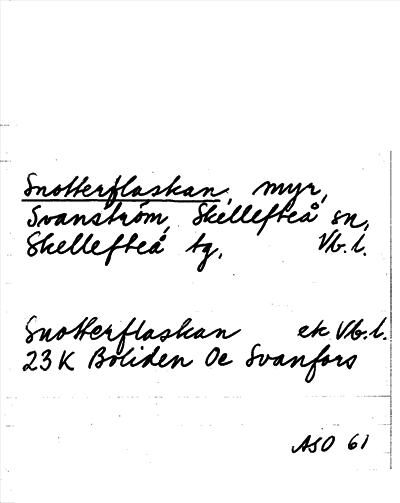 Snotterflaskan, myr,
Svanström, Skellefteå sn,
Skellefteå tg, Vb.l.
Snotterflaskan ek Vb.l.
23K Boliden Oe Svanfors
ASO 61